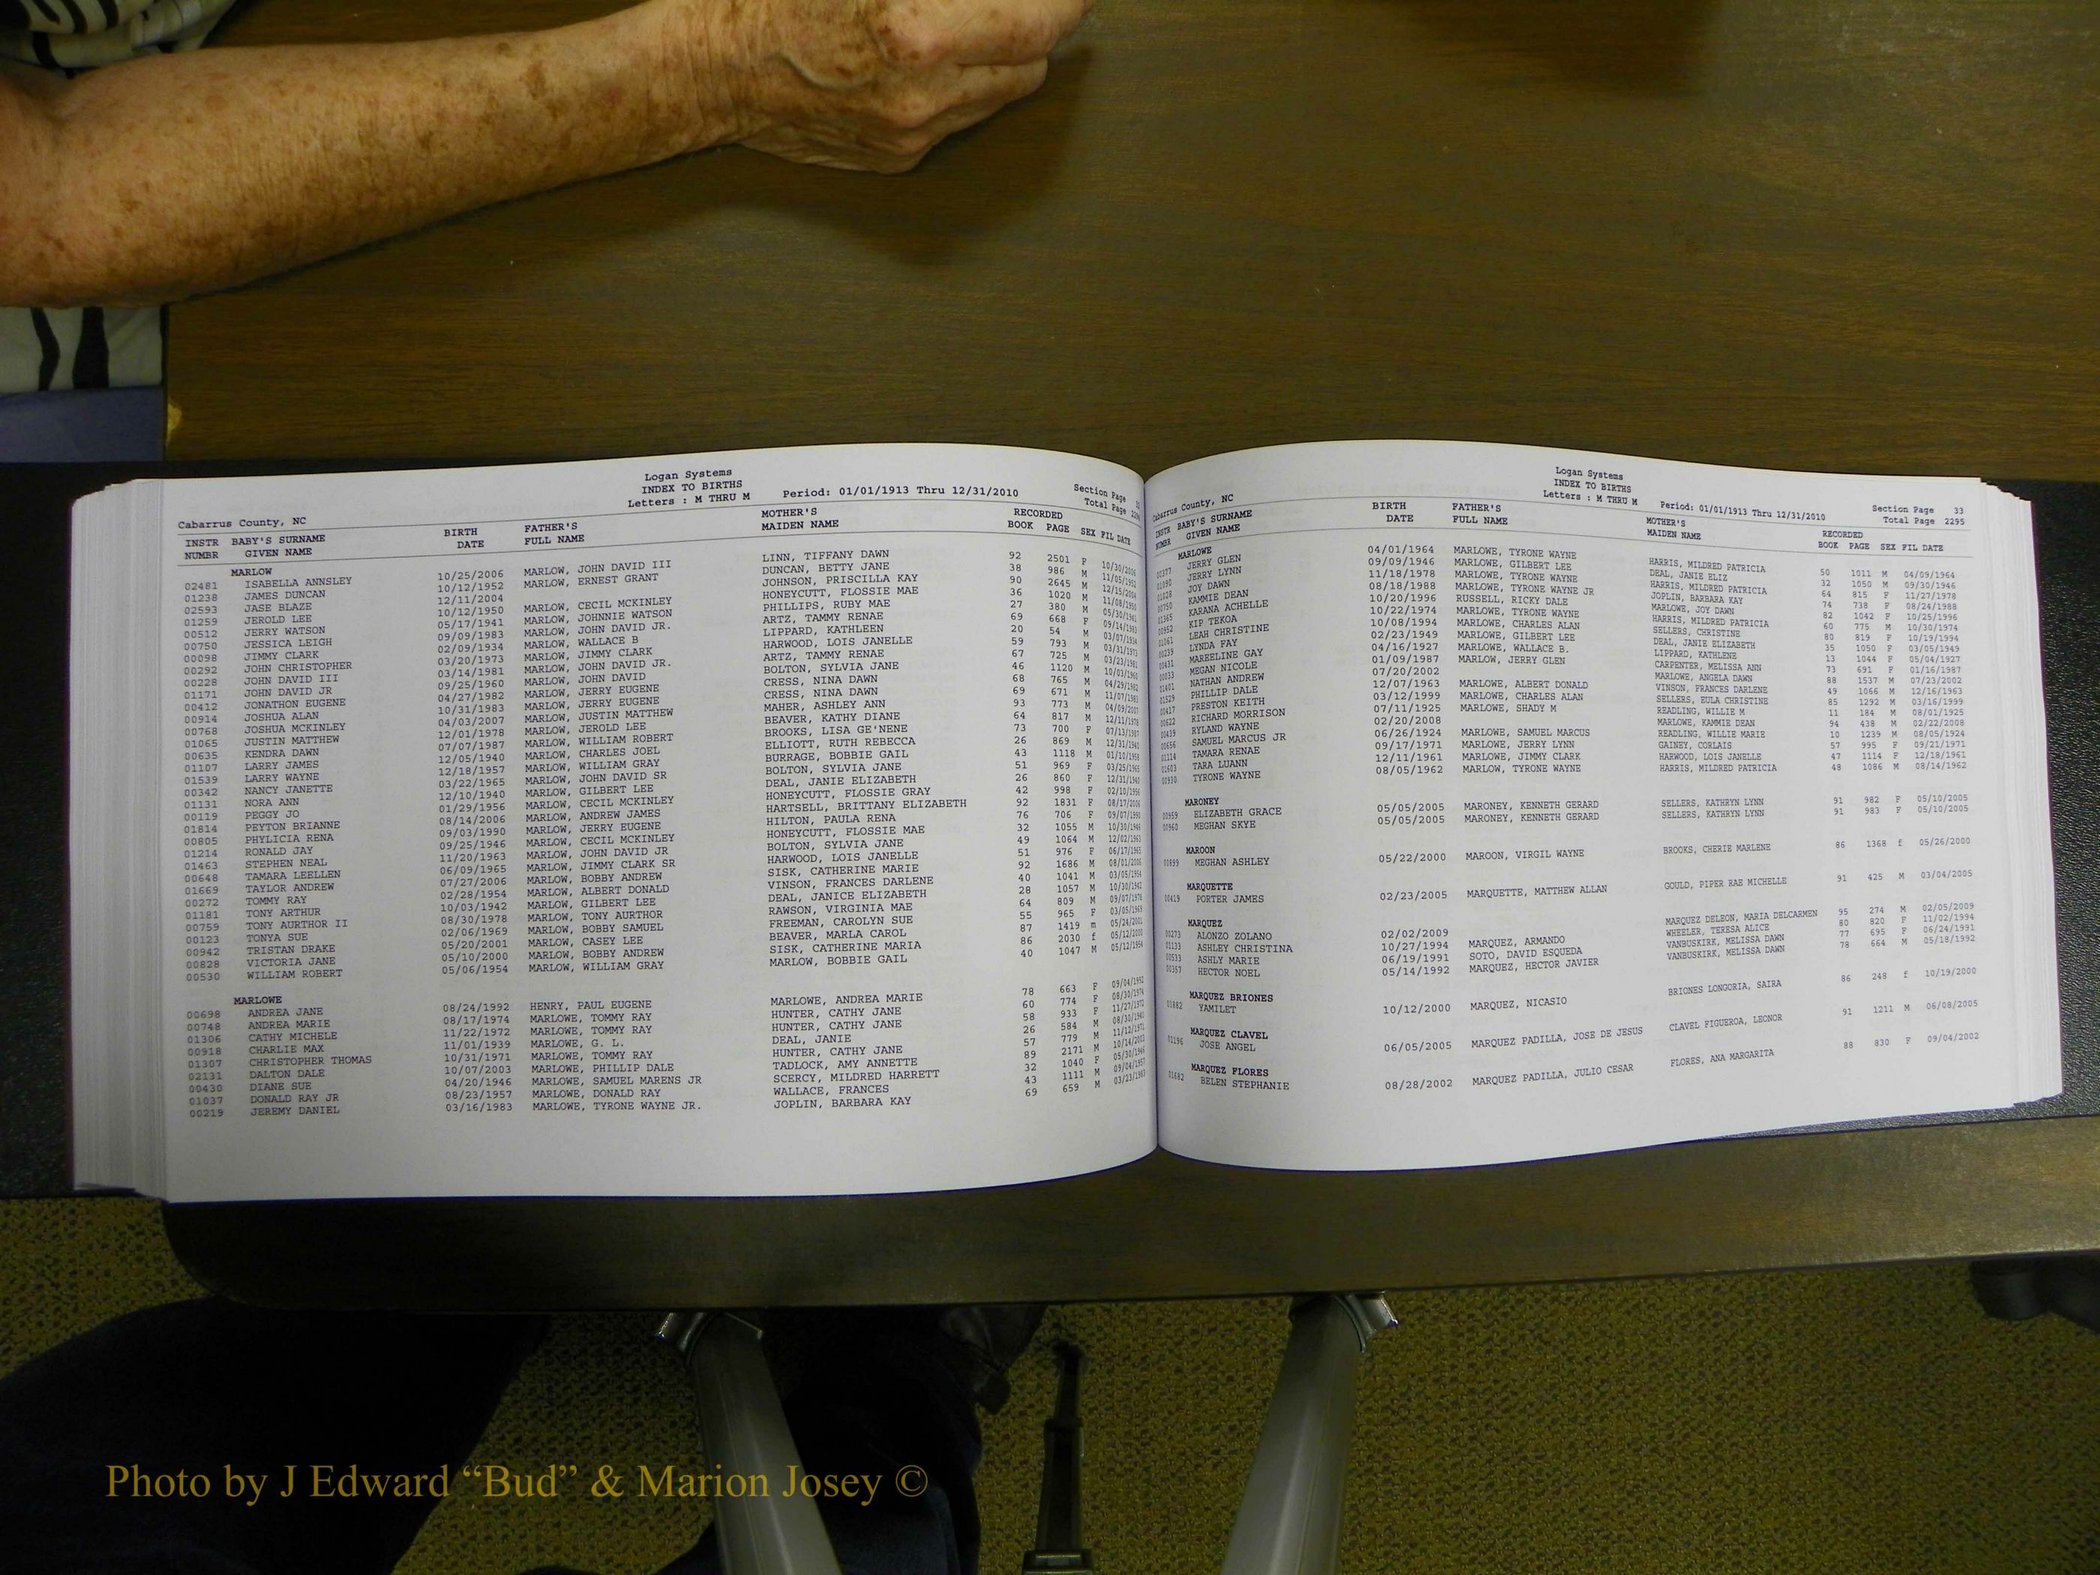 Logan Systems
INDEX TO BIRTHS
Letters : M THRU M Period: 01/01/1913 Thru 12/31/2010 Section Page
Cabarrus County, NC Total Page
INSTR NUMBR BABY'S SURNAME GIVEN NAME BIRTH DATE FATHER'S FULL NAME MOTHER'S MAIDEN NAME RECORDED BOOK PAGE SEX FIL DATE
MARLOW
02481 ISABELLA ANNSLEY 10/25/2006 MARLOW, JOHN DAVID III LINN, TIFFANY DAWN 92 2501 F 10/30/2006
01238 JAMES DUNCAN 10/12/1952 MARLOW, ERNEST GRANT DUNCAN, BETTY JANE 38 986 M 11/05/1952
02593 JASE BLAZE 12/11/2004 JOHNSON, PRISCILLA KAY 90 2645 M 12/15/2004
01259 JEROLD LEE 10/12/1950 MARLOW, CECIL MCKINLEY HONEYCUTT, FLOSSIE MAE 36 1020 M 11/08/1950
00512 JERRY WATSON 05/17/1941 MARLOW, JOHNNIE WATSON PHILLIPS, RUBY MAE 27 380 M 05/30/1941
00750 JESSICA LEIGH 09/09/1983 MARLOW, JOHN DAVID JR. ARTZ, TAMMY RENAE 69 668 F 09/14/1983
00098 JIMMY CLARK 02/09/1934 MARLOW, WALLACE B LIPPARD, KATHLEEN 20 54 M 03/07/1934
00292 JOHN CHRISTOPHER 03/20/1973 MARLOW, JIMMY CLARK HARWOOD, LOIS JANELLE 59 793 M 03/31/1973
00228 JOHN DAVID III 03/14/1981 MARLOW, JOHN DAVID JR. ARTZ, TAMMY RENAE 67 725 M 03/23/1981
01171 JOHN DAVID JR 09/25/1960 MARLOW, JOHN DAVID BOLTON, SYLVIA JANE 46 1120 M 10/03/1960
00412 JONATHON EUGENE 04/27/1982 MARLOW, JERRY EUGENE CRESS, NINA DAWN 68 765 M 04/29/1982
00914 JOSHUA ALAN 10/31/1983 MARLOW, JERRY EUGENE CRESS, NINA DAWN 69 671 M 11/07/1983
00768 JOSHUA MCKINLEY 04/03/2007 MARLOW, JUSTIN MATTHEW MAHER, ASHLEY ANN 93 773 M 04/09/2007
01065 JUSTIN MATTHEW 12/01/1978 MARLOW, JEROLD LEE BEAVER, KATHY DIANE 64 817 M 12/11/1978
00635 KENDRA DAWN 07/07/1987 MARLOW, WILLIAM ROBERT BROOKS, LISA GE'NENE 73 700 F 07/13/1987
01107 LARRY JAMES 12/05/1940 MARLOW, CHARLES JOEL ELLIOTT, RUTH REBECCA 26 869 M 12/31/1940
01539 LARRY WAYNE 12/18/1957 MARLOW, WILLIAM GRAY BURRAGE, BOBBIE GAIL 43 1118 M 01/10/1958
00342 NANCY JANETTE 03/22/1965 MARLOW, JOHN DAVID SR BOLTON, SYLVIA JANE 51 969 F 03/25/1965
01131 NORA ANN 12/10/1940 MARLOW, GILBERT LEE DEAL, JANIE ELIZABETH 26 860 F 12/31/1940
00119 PEGGY JO 01/29/1956 MARLOW, CECIL MCKINLEY HONEYCUTT, FLOSSIE GRAY 42 998 F 02/10/1956
01814 PEYTON BRIANNE 08/14/2006 MARLOW, ANDREW JAMES HARTSELL, BRITTANY ELIZABETH 92 1831 F 08/17/2006
00805 PHYLICIA RENA 09/03/1990 MARLOW, JERRY EUGENE HILTON, PAULA RENA 76 706 F 09/07/1990
01214 RONALD JAY 09/25/1946 MARLOW, CECIL MCKINLEY HONEYCUTT, FLOSSIE MAE 32 1055 M 10/30/1946
01463 STEPHEN NEAL 11/20/1963 MARLOW, JOHN DAVID JR BOLTON, SYLVIA JANE 49 1064 M 12/02/1963
00648 TAMARA LEELLEN 06/09/1965 MARLOW, JIMMY CLARK SR HARWOOD, LOIS JANELLE 51 976 F 06/17/1965
01669 TAYLOR ANDREW 07/27/2006 MARLOW, BOBBY ANDREW SISK, CATHERINE MARIE 92 1686 M 08/01/2006
00272 TOMMY RAY 02/28/1954 MARLOW, ALBERT DONALD VINSON, FRANCES DARLENE 40 1041 M 03/05/1954
01181 TONY ARTHUR 10/03/1942 MARLOW, GILBERT LEE DEAL, JANICE ELIZABETH 28 1057 M 10/30/1942
00759 TONY AURTHOR II 08/30/1978 MARLOW, TONY AURTHOR RAWSON, VIRGINIA MAE 64 809 M 09/07/1978
00123 TONYA SUE 02/06/1969 MARLOW, BOBBY SAMUEL FREEMAN, CAROLYN SUE 55 965 F 03/05/1969
00942 TRISTAN DRAKE 05/20/2001 MARLOW, CASEY LEE BEAVER, MARLA CAROL 87 1419 m 05/24/2001
00828 VICTORIA JANE 05/10/2000 MARLOW, BOBBY ANDREW SISK, CATHERINE MARIA 86 2030 f 05/12/2000
00530 WILLIAM ROBERT 05/06/1954 MARLOW, WILLIAM GRAY MARLOW, BOBBIE GAIL 40 1047 M 05/12/1954
MARLOWE
00698 ANDREA JANE 08/24/1992 HENRY, PAUL EUGENE MARLOWE, ANDREA MARIE 78 663 F 09/04/1992
00748 ANDREA MARIE 08/17/1974 MARLOWE, TOMMY RAY HUNTER, CATHY JANE 60 774 F 08/30/1974
01306 CATHY MICHELE 11/22/1972 MARLOWE, TOMMY RAY HUNTER, CATHY JANE 58 933 F 11/27/1972
00918 CHARLIE MAX 11/01/1939 MARLOWE, G. L. DEAL, JANIE 26 584 M 08/30/1940
01307 CHRISTOPHER THOMAS 10/31/1971 MARLOWE, TOMMY RAY HUNTER, CATHY JANE 57 779 M 11/12/1971
02131 DALTON DALE 10/07/2003 MARLOWE, PHILLIP DALE TADLOCK, AMY ANNETTE 89 2171 M 10/14/2003
00430 DIANE SUE 04/20/1946 MARLOWE, SAMUEL MARENS JR SCERCY, MILDRED HARRETT 32 1040 F 05/30/1946
01037 DONALD RAY JR 08/23/1957 MARLOWE, DONALD RAY WALLACE, FRANCES 43 1111 M 09/04/1957
00219 JEREMY DANIEL 03/16/1983 MARLOWE, TYRONE WAYNE JR. JOPLIN, BARBARA KAY 69 659 M 03/23/1983
Logan Systems
INDEX TO BIRTHS
Letters : M THRU M Period: 01/01/1913 Thru 12/31/2010 Section Page 33
Cabarrus County, NC Total Page 2295
INSTR NUMBR BABY'S SURNAME GIVEN NAME BIRTH DATE FATHER'S FULL NAME MOTHER'S MAIDEN NAME RECORDED BOOK PAGE SEX FIL DATE
MARLOWE
00377 JERRY GLEN 04/01/1964 MARLOWE, TYRONE WAYNE HARRIS, MILDRED PATRICIA 50 1011 M 04/09/1964
01090 JERRY LYNN 09/09/1946 MARLOWE, GILBERT LEE DEAL, JANIE ELIZ 32 1050 M 09/30/1946
01028 JOY DAWN 11/18/1978 MARLOWE, TYRONE WAYNE HARRIS, MILDRED PATRICIA 64 815 F 11/27/1978
00750 KAMMIE DEAN 08/18/1988 MARLOWE, TYRONE WAYNE JR JOPLIN, BARBARA KAY 74 738 F 08/24/1988
01365 KARANA ACHELLE 10/20/1996 RUSSELL, RICKY DALE MARLOWE, JOY DAWN 82 1042 F 10/25/1996
00952 KIP TEKOA 10/22/1974 MARLOWE, TYRONE WAYNE HARRIS, MILDRED PATRICIA 60 775 M 10/30/1974
01061 LEAH CHRISTINE 10/08/1994 MARLOWE, CHARLES ALAN SELLERS, CHRISTINE 80 819 F 10/19/1994
00239 LYNDA FAY 02/23/1949 MARLOWE, GILBERT LEE DEAL, JANIE ELIZABETH 35 1050 F 03/05/1949
00431 MAREELINE GAY 04/16/1927 MARLOWE, WALLACE B. LIPPARD, KATHLENE 13 1044 F 05/04/1927
00033 MEGAN NICOLE 01/09/1987 MARLOW, JERRY GLEN CARPENTER, MELISSA ANN 73 691 F 01/16/1987
01401 NATHAN ANDREW 07/20/2002 MARLOWE, ANGELA DAWN 88 1537 M 07/23/2002
01529 PHILLIP DALE 12/07/1963 MARLOWE, ALBERT DONALD VINSON, FRANCES DARLENE 49 1066 M 12/16/1963
00417 PRESTON KEITH 03/12/1999 MARLOWE, CHARLES ALAN SELLERS, EULA CHRISTINE 85 1292 M 03/16/1999
00622 RICHARD MORRISON 07/11/1925 MARLOWE, SHADY M READLING, WILLIE M 11 184 M 08/01/1925
00439 RYLAND WAYNE 02/20/2008 MARLOWE, KAMMIE DEAN 94 438 M 02/22/2008
00656 SAMUEL MARCUS JR 06/26/1924 MARLOWE, SAMUEL MARCUS READLING, WILLIE MARIE 10 1239 M 08/05/1924
01114 TAMARA RENAE 09/17/1971 MARLOWE, JERRY LYNN GAINEY, CORLAIS 57 995 F 09/21/1971
01603 TARA LUANN 12/11/1961 MARLOW, JIMMY CLARK HARWOOD, LOIS JANELLE 47 1114 F 12/18/1961
00930 TYRONE WAYNE 08/05/1962 MARLOW, TYRONE WAYNE HARRIS, MILDRED PATRICIA 48 1086 M 08/14/1962
MARONEY
00959 ELIZABETH GRACE 05/05/2005 MARONEY, KENNETH GERARD SELLERS, KATHRYN LYNN 91 982 F 05/10/2005
00960 MEGHAN SKYE 05/05/2005 MARONEY, KENNETH GERARD SELLERS, KATHRYN LYNN 91 983 F 05/10/2005
MAROON
00899 MEGHAN ASHLEY 05/22/2000 MAROON, VIRGIL WAYNE BROOKS, CHERIE MARLENE 86 1368 f 05/26/2000
MARQUETTE
00419 PORTER JAMES 02/23/2005 MARQUETTE, MATTHEW ALLAN GOULD, PIPER RAE MICHELLE 91 425 M 03/04/2005
MARQUEZ
00273 ALONZO ZOLANO 02/02/2009 MARQUEZ DELEON, MARIA DELCARMEN 95 274 M 02/05/2009
01133 ASHLEY CHRISTINA 10/27/1994 MARQUEZ, ARMANDO WHEELER, TERESA ALICE 80 820 F 11/02/1994
00533 ASHLY MARIE 06/19/1991 SOTO, DAVID ESQUEDA VANBUSKIRK, MELISSA DAWN 77 695 F 06/24/1991
00357 HECTOR NOEL 05/14/1992 MARQUEZ, HECTOR JAVIER VANBUSKIRK, MELISSA DAWN 78 664 M 05/18/1992
MARQUEZ BRIONES
01882 YAMILET 10/12/2000 MARQUEZ, NICASIO BRIONES LONGORIA, SAIRA 86 248 f 10/19/2000
MARQUEZ CLAVEL
01196 JOSE ANGEL 06/05/2005 MARQUEZ PADILLA, JOSE DE JESUS CLAVEL FIGUEROA, LEONOR 91 1211 M 06/08/2005
MARQUEZ FLORES
01682 BELEN STEPHANIE 08/28/2002 MARQUEZ PADILLA, JULIO CESAR FLORES, ANA MARGARITA 88 830 F 09/04/2002
Photo by J Edward “Bud” & Marion Josey ©